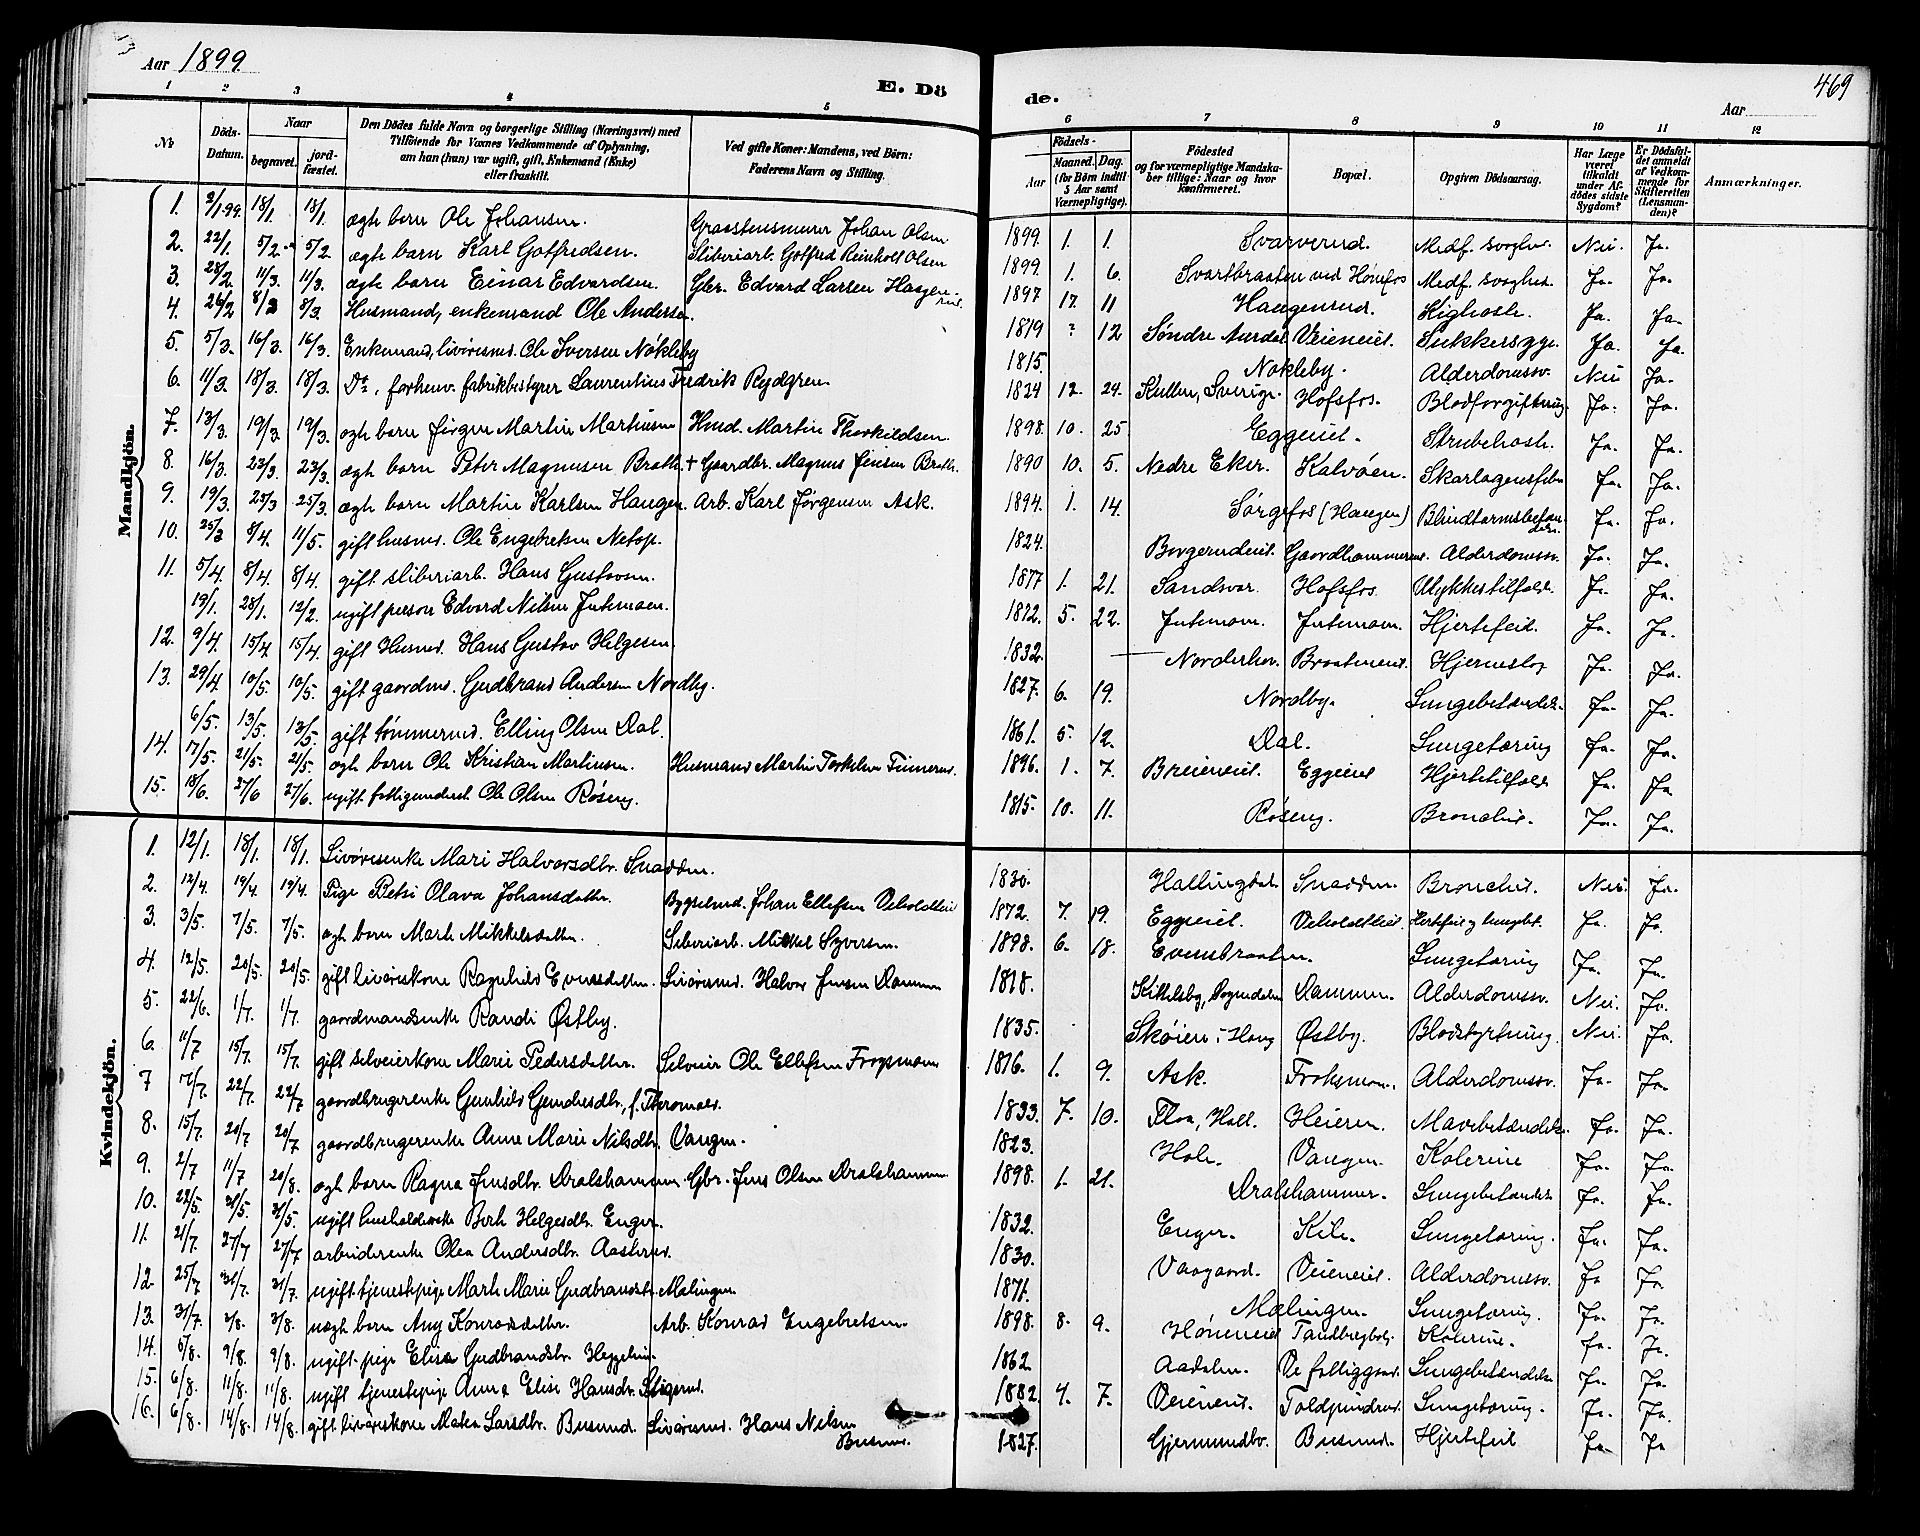 Aar 1899.
E. Døde.
Aar
469
1 2 3 4 5 6 7 8 9 10 11 12
No
Døds-Datum.
Naar
begravet.
jord-fæstet.
Den Dødes fulde Navn og borgerlige Stilling (Næringsvei) med Tilføiende for Voxnes Vedkommende af Oplysning, om han (hun) var ugift, gift, Enkemand (Enke) eller fraskilt.
Ved gifte Koner: Mandens, ved Børn: Faderens Navn og Stilling.
Fødsels-
Aar
Maaned. Dag.
(for Børn indtil 5 Aar samt Værnepligtige).
Fødested og for værnepligtige Mandskaber tillige: Naar og hvor Konfirmeret.
Bopæl.
Opgiven Dødsaarsag.
Har Læge været tilkaldt under Afdødes sidste Sygdom?
Er Dødsfaldet anmeldt af Vedkommende for Skifteretten (Lensmanden)?
Anmærkninger.
Mandkjøn.
1. 2/1 99. 18/1 18/1. ægte barn Ole Johansen. Graastensmurer Johan Olsen 1899. 1. 1. Svarverud. Medf. svaghed. Nei Ja.
2. 22/1. 5/2 5/2 ægte barn Karl Gotfredsen. Sliberiarb. Gotfred Reinholt Olsen 1899. 1. 6. Svartbraaten ved Hønefos Medf. svaghed. Ja. Ja.
3. 28/2. 11/3. 11/3. ægte barn Einar Edvardsen. Gbr. Edvard Larsen Haugenrud. 1897 11 Haugenrud. Kighoste. Ja. Ja.
4. 26/2 8/3 8/3. Husmand, enkemand Ole Andersen. 1819 ? 12 Søndre Aurdal Veieneiet. Sukkersyge. Ja. Ja.
5. 5/3. 16/3. 16/3. Enkemand, livøresmd. Ole Iversen Nøkleby 1815. Nøkleby. Alderdomssv. Nei Ja.
6. 11/3. 18/3. 18/3. Do., forhenv. fabrikbestyrer Laurentius Fredrik Rydgren 1824 12. 24. Kullen, Sverige. Hofsfos. Blodforgiftning. Ja. Ja.
7. 13/3. 19/3. 19/3. ægte barn Jørgen Martin Martinsen Hmd. Martin Thorkildsen. 1898. 10. 25 Eggeeiet. Strubehoste. Ja. Ja.
8. 16/3. 23/3. 23/3. ægte barn Peter Magnusen Brath. + Gaardbr. Magnus Jensen Brath. 1890 10. 5. Nedre Eker. Kalvøen. Skarlagensfeber Ja. Ja.
9. 19/3. 25/3 25/3. ægte barn Martin Karlsen Haugen. Arb. Karl Jørgensen Ask. 1894. 1. 14. Sørgefos (Haugen) Blindtarmsbetændelse. Ja. Ja.
10. 25/3 8/4. 11/5. gift husmd. Ole Engebretsen Netop. 1824. Borgerudeiet. Gaardhammereiet. Alderdomssv. Ja. Ja.
11. 5/4. 8/4. 8/4. gift sliberiarb. Hans Gustavsen. 1877 1. 21. Sandsvær. Hofsfos. Ulykkestilfælde. Ja. Ja.
19/1. 28/1. 12/2. ugift person Edvard Nilsen Jutemoen. 5. 22. Jutemoen. Jutemoen. Hjertefeil. Ja. Ja.
12. 9/4. 15/4 15/4. gift Husmd. Hans Gustav Helgesen. 1832. Norderhov. Braateneiet. Hjerneslag Ja. Ja.
13. 29/4. 10/5. 10/5. gift gaardmd. Gudbrand Andersen Nordby. 1827. 6. 19. Nordby. Lungebetændelse. Ja. Ja.
6/5. 13/5. 13/5. gift tømmermd. Elling Olsen Dal. 1861. 5. 12. Dal. Lungetæring Ja. Ja.
14. 17/5. 21/5. 21/5. ægte barn Ole Kristian Martinsen. Husmand Martin Torkelsen 1896. 1. 7. Eggeeiet Hjertetilfælde Ja. Ja.
15. 18/6. 27/6 27/6. ugift fattigunderst. Ole Olsen Røseng. 1815. 10. 11. Røseng. Bronchit. Ja. Ja.
Kvindekjøn.
1. 12/1. 18/1. 18/1. Livøresenke Mari Halvorsdtr. Snadden. 1830. Hallingdal. Snadden. Bronchit. Nei. Ja.
2. 12/4. 19/4. 19/4. Pige Betsi Olava Johansdatter. Bygselmd. Johan Ellefsen Veholdteiet 1872. 7. 19. Eggeeiet. Veholdteiet. Hjertefeil og lungebet. Ja. Ja.
3. 3/5. 7/5. 7/5. ægte barn Marthe Mikkelsdatter. Sliberiarb. Mikkel Syversen. 1898. 6. 18. Evensbraaten. Lungetæring Ja. Ja.
4. 12/5. 20/5. 20/5. gift livøreskone Ragnhild Evensdatter. Livøresmd. Halvor Jensen Dammen 1818. Kittelsby, Sognedalen Dammen. Alderdomssv. Nei. Ja.
5. 22/6. 1/7. 1/7. gaardmandsenke Randi Østby. 1835. Skøien i Haug Østby. Blodstyrtning. Nei. Ja.
6. 11/7 15/7. 15/7. gift selveierkone Marie Pedersdatter. Selveier Ole Ellefsen Frogsmoen 1816. 1. 9. Ask. Froksmoen. Alderdomssv. Ja. Ja.
7 22/7. 22/7 gaardbrugerenke Gunhild 1833. 7. 10. Flaa, Hall. Heieren. Mavebetændelse. Ja. Ja.
8. 15/7. 20/7 20/7 gaardbrugerenke Anne Marie Nilsdtr. Vangen. 1823. Hole. Vangen. Kolerine Ja. Ja.
9. 2/7 11/7 20/8. ægte barn Ragna Jensdtr. Dralshammeren. Gbr. Jens Olsen Dralshammeren 1898. 1. 21. Dralshammer. Lungebetændelse Ja. Ja.
10. 22/5. 31/5. 31/5. ugift husholderske Berthe Helgesdtr. Enger. 1832. Enger. Kile. Lungetæring. Ja. Ja.
11. 21/7. 27/7 27/7 arbeiderenke Olea Andersdtr. Aasterud. 1830. Vaagaard. Veieneiet. Alderdomssv. Ja Ja.
12. 25/7 31/7. 31/7. ugift tjenestepige Marthe Marie Gudbrandsdtr. Mælingen 1871. Mælingen. Lungetæring. Ja. Ja.
13. 31/7 3/8. 3/8. uægte barn Any Konradsdatter. Arb. Konrad Engebretsen. 1898. 8. 9. Høneneiet Tandbergbak. Kolerine. Ja. Ja.
14. 5/8. 9/8. 9/8. ugift pige Elise Gudbrandsdtr. Heggelien. 1862. Aadalen. De fattiggaard. Lungebetændelse Ja. Ja.
15. 6/8. 11/8. 11/8. ugift tjenestepige Anne Elise Hansdtr. Stigerud. 1882. 4. 7. Veieneiet. Toldpinderud. Lungetæring. Ja. Ja.
16. 6/8. 14/8. 14/8. gift livøreskone Maken Larsdtr. Busund. Livøresmd. Hans Nilsen Busund. 1827. Gjermundbo. Busund. Hjertefeil Ja. Ja